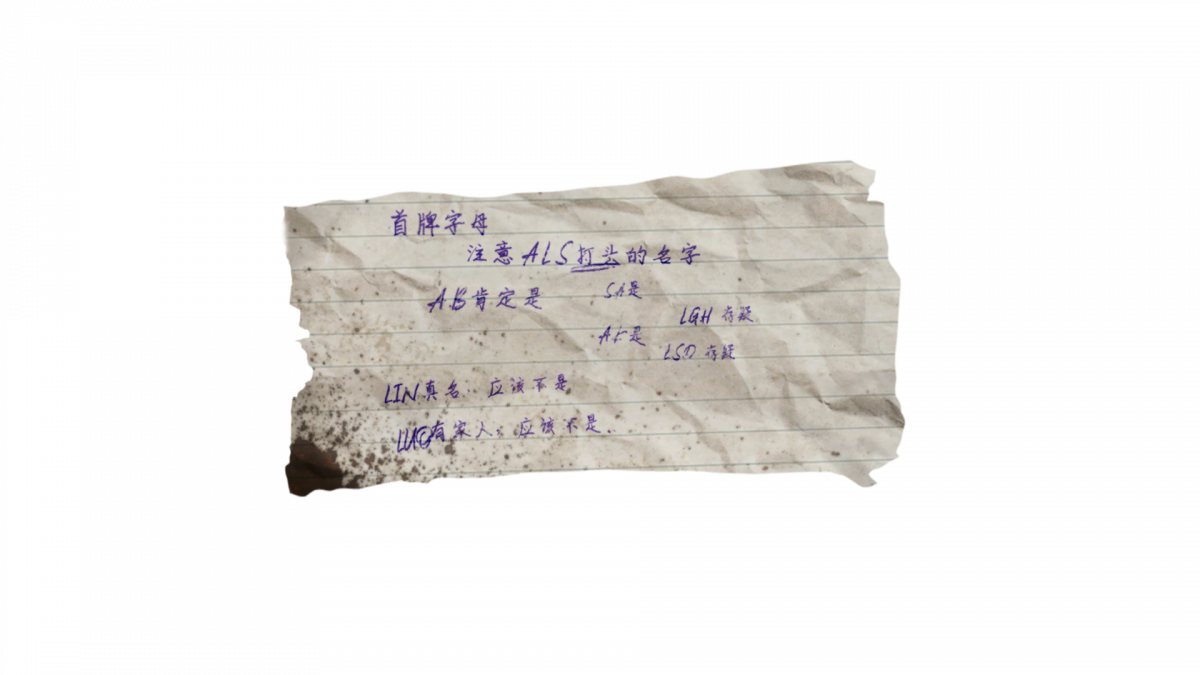 首牌字母
注意ALS打头的名字
AB肯定是
SA是
LGH 存疑
AF是
LSD 存疑
LIN真名.. 应该不是
LUG有家人.. 应该不是.